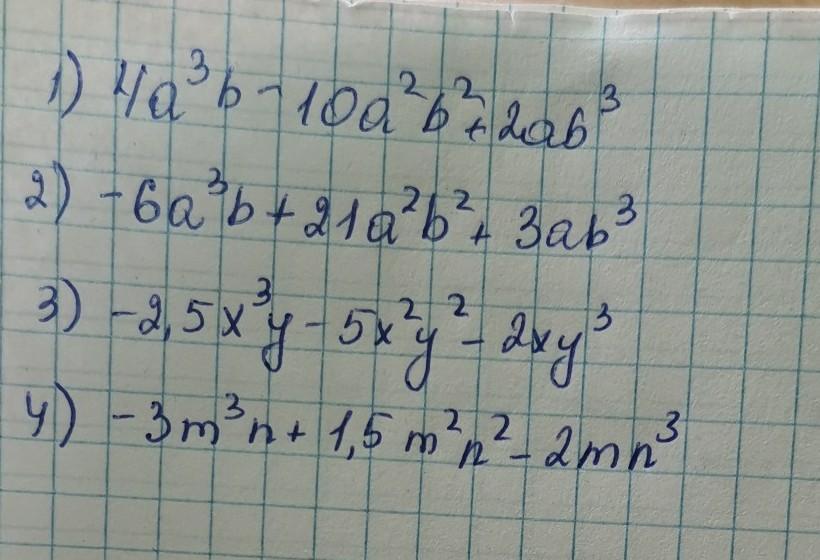 1) 4a³b - 10a²b² + 2ab³
2) -6a³b + 21a²b² + 3ab³
3) -2,5x³y - 5x²y² - 2xy³
4) -3m³n + 1,5m²n² - 2mn³